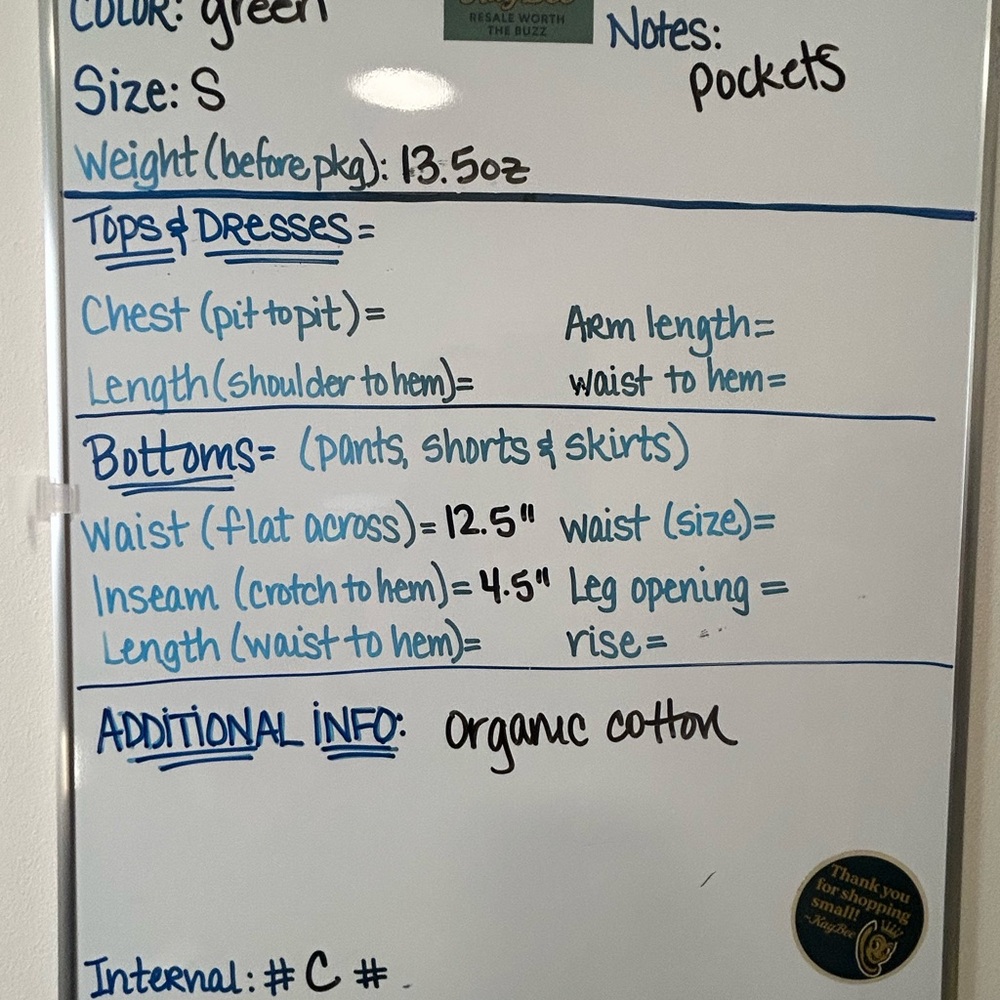 COLOR: green
KayBee
RESALE WORTH
THE BUZZ
Notes:
Pockets
Size: S
Weight (before pkg): 13.5oz
Tops & Dresses =
Chest (pit to pit) =
Arm length =
Length (shoulder to hem) =
waist to hem =
Bottoms = (pants, shorts & skirts)
Waist (flat across) = 12.5" waist (size) =
Inseam (crotch to hem) = 4.5" Leg opening =
Length (waist to hem) =
rise =
ADDITIONAL INFO: organic cotton
Thank you
for shopping
small!
~KayBee
Internal: # C #